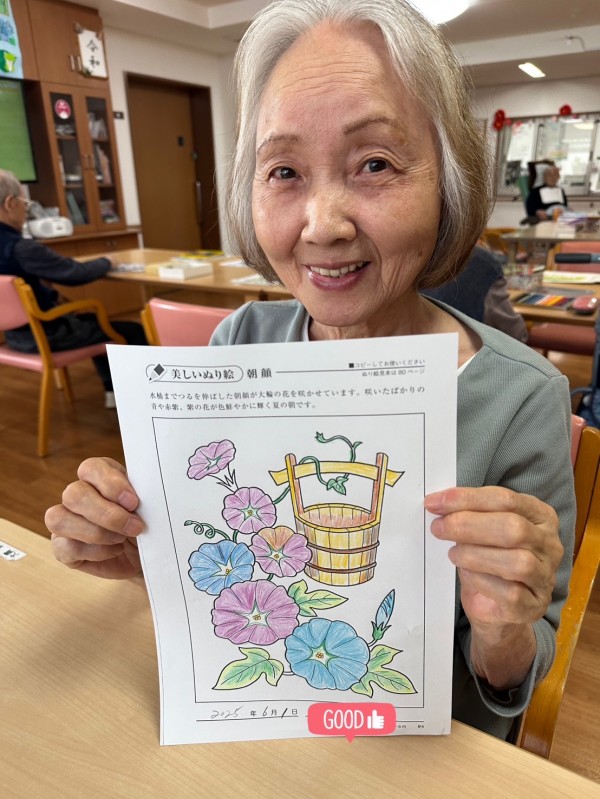 令和
美しいぬり絵 朝顔
■コピーしてお使いください
ぬり絵見本は 80 ページ
水桶までつるを伸ばした朝顔が大輪の花を咲かせています。咲いたばかりの
青や赤紫、紫の花が色鮮やかに輝く夏の朝です。
2025 年 6月1日
GOOD